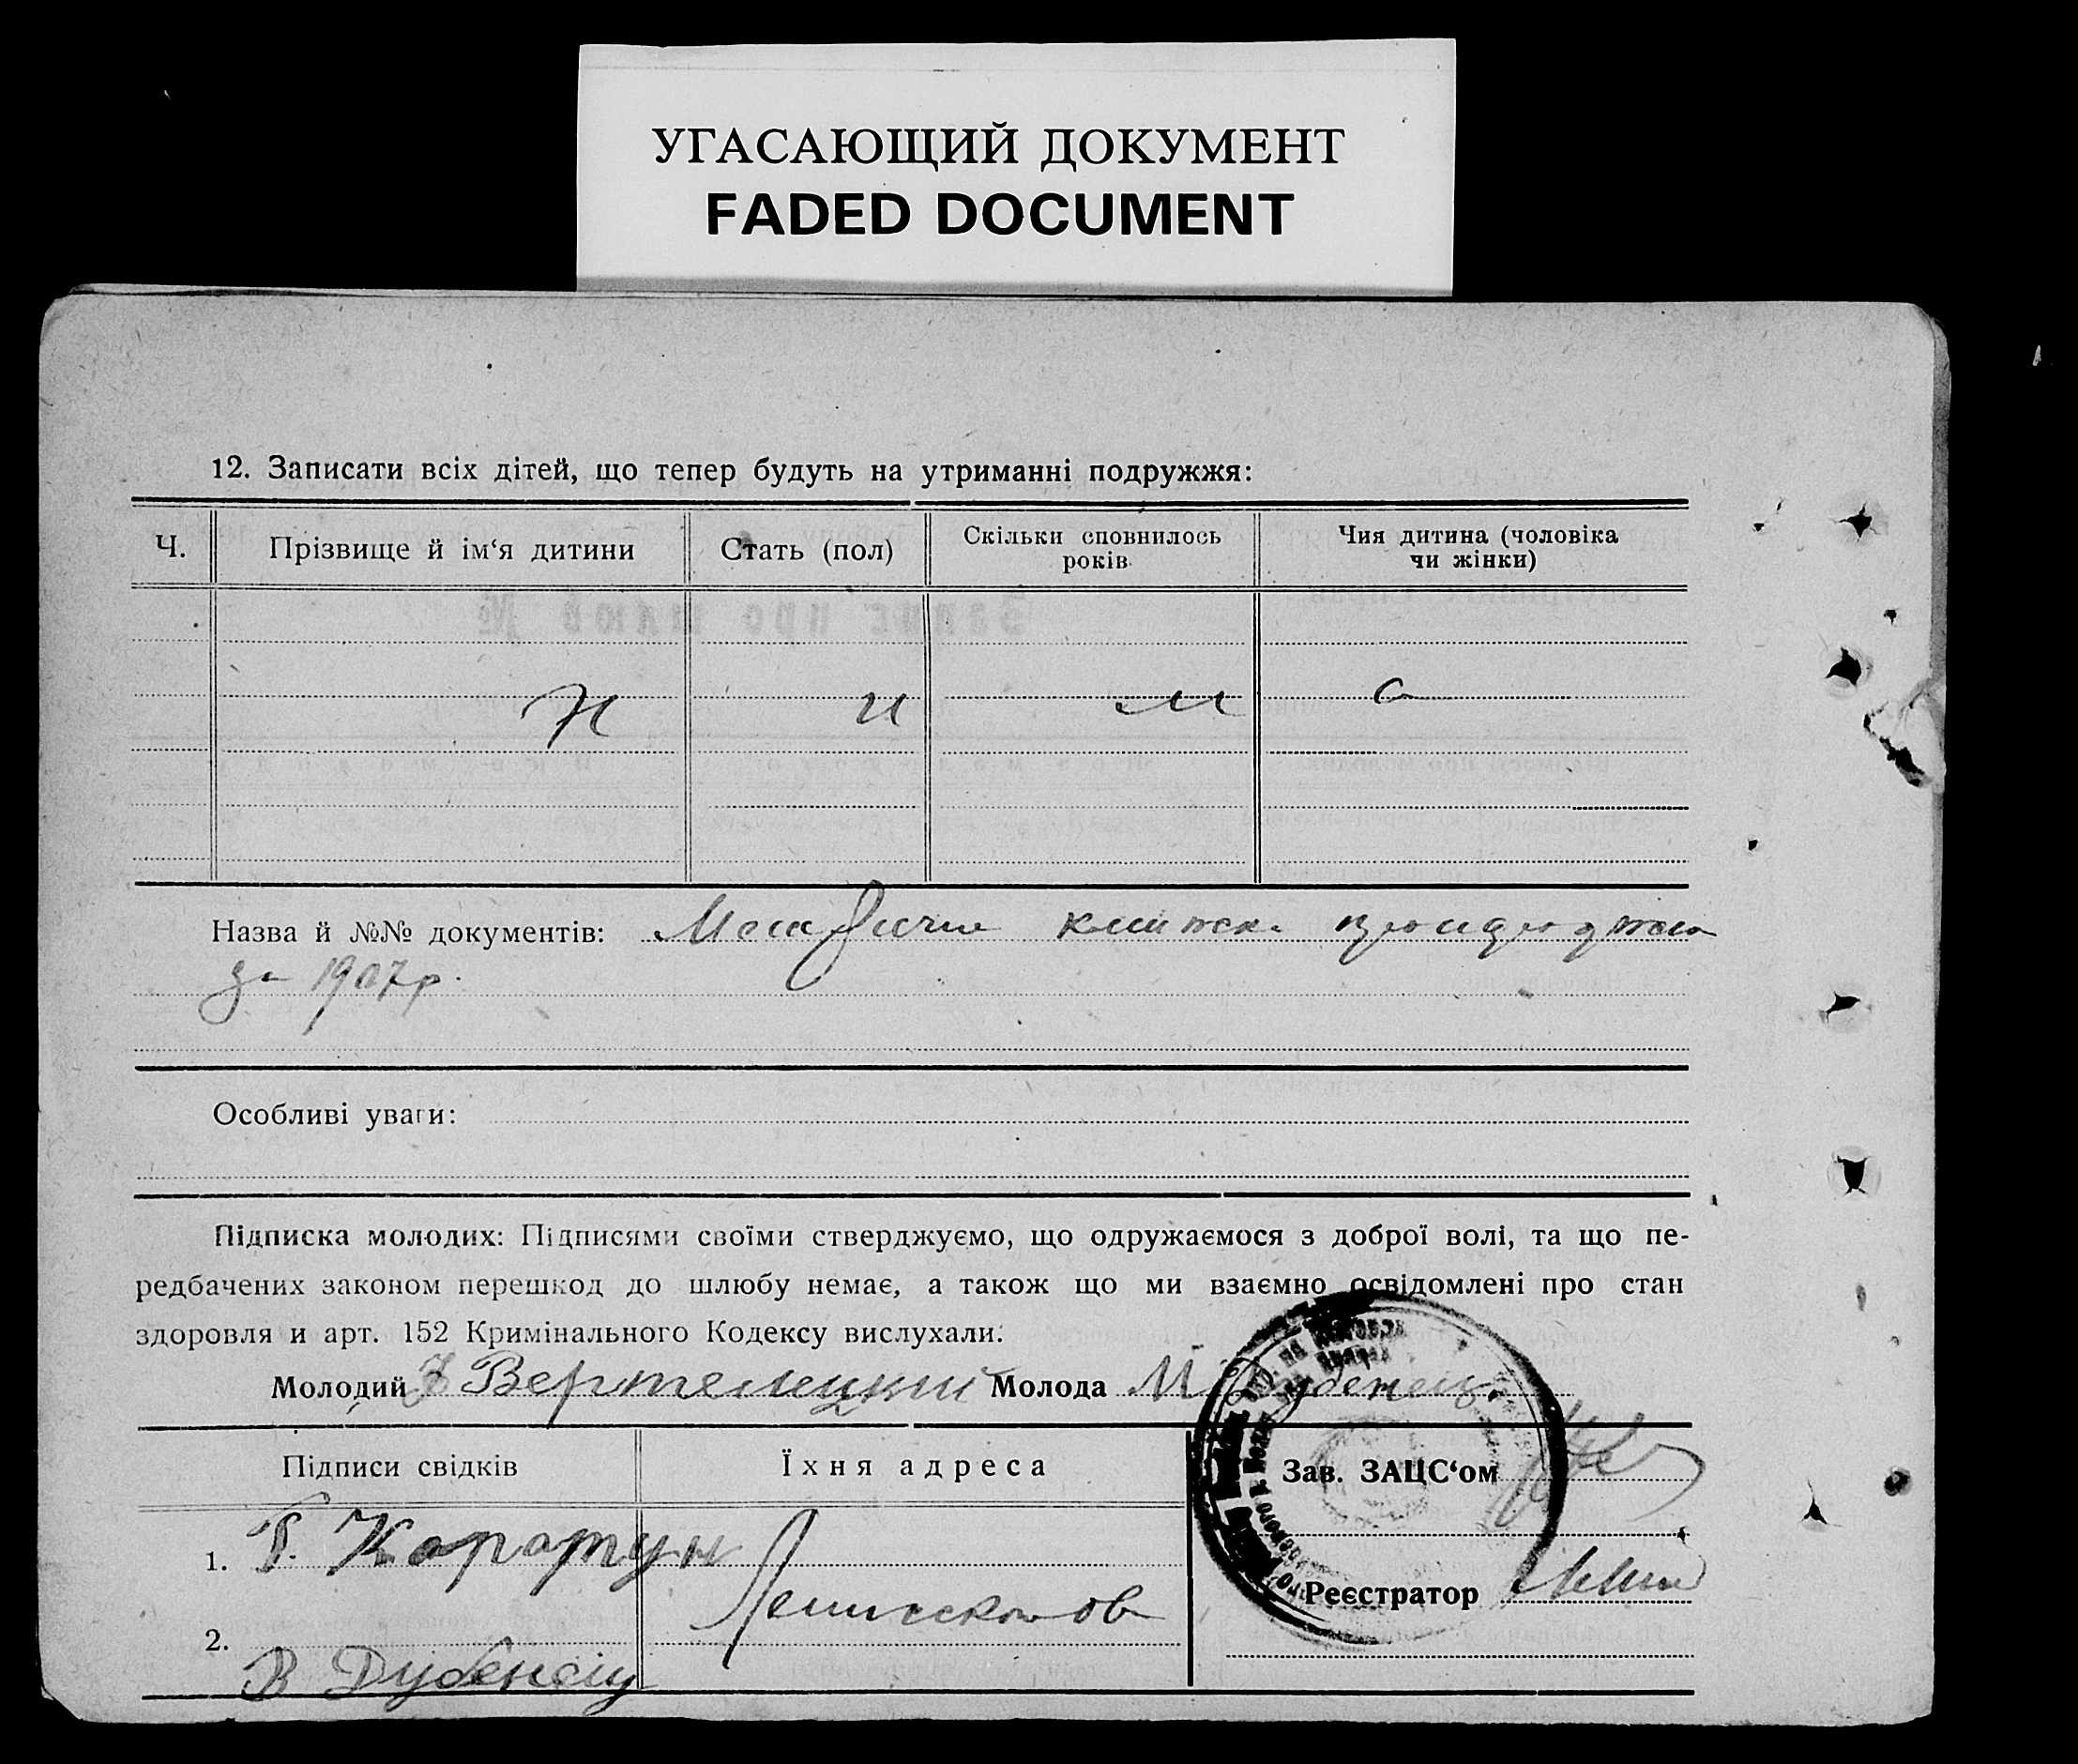 УГАСАЮЩИЙ ДОКУМЕНТ
FADED DOCUMENT
12. Записати всіх дітей, що тепер будуть на утриманні подружжя:
Ч.
Прізвище й ім‘я дитини
Стать (пол)
Скільки сповнилось
років
Чия дитина (чоловіка
чи жінки)
Н и м а
Назва й №№ документів:
за 1907р.
Особливі уваги:
Підписка молодих: Підписями своїми стверджуємо, що одружаємося з доброї волі, та що пе-
редбачених законом перешкод до шлюбу немає, а також що ми взаємно освідомлені про стан
здоровля и арт. 152 Кримінального Кодексу вислухали:
Молодий Вертелецкий Молода М Дубенец.
Підписи свідків
Їхня адреса
Зав. ЗАЦС‘ом
1. Г. Коротун
Реєстратор
2. В Дубенец